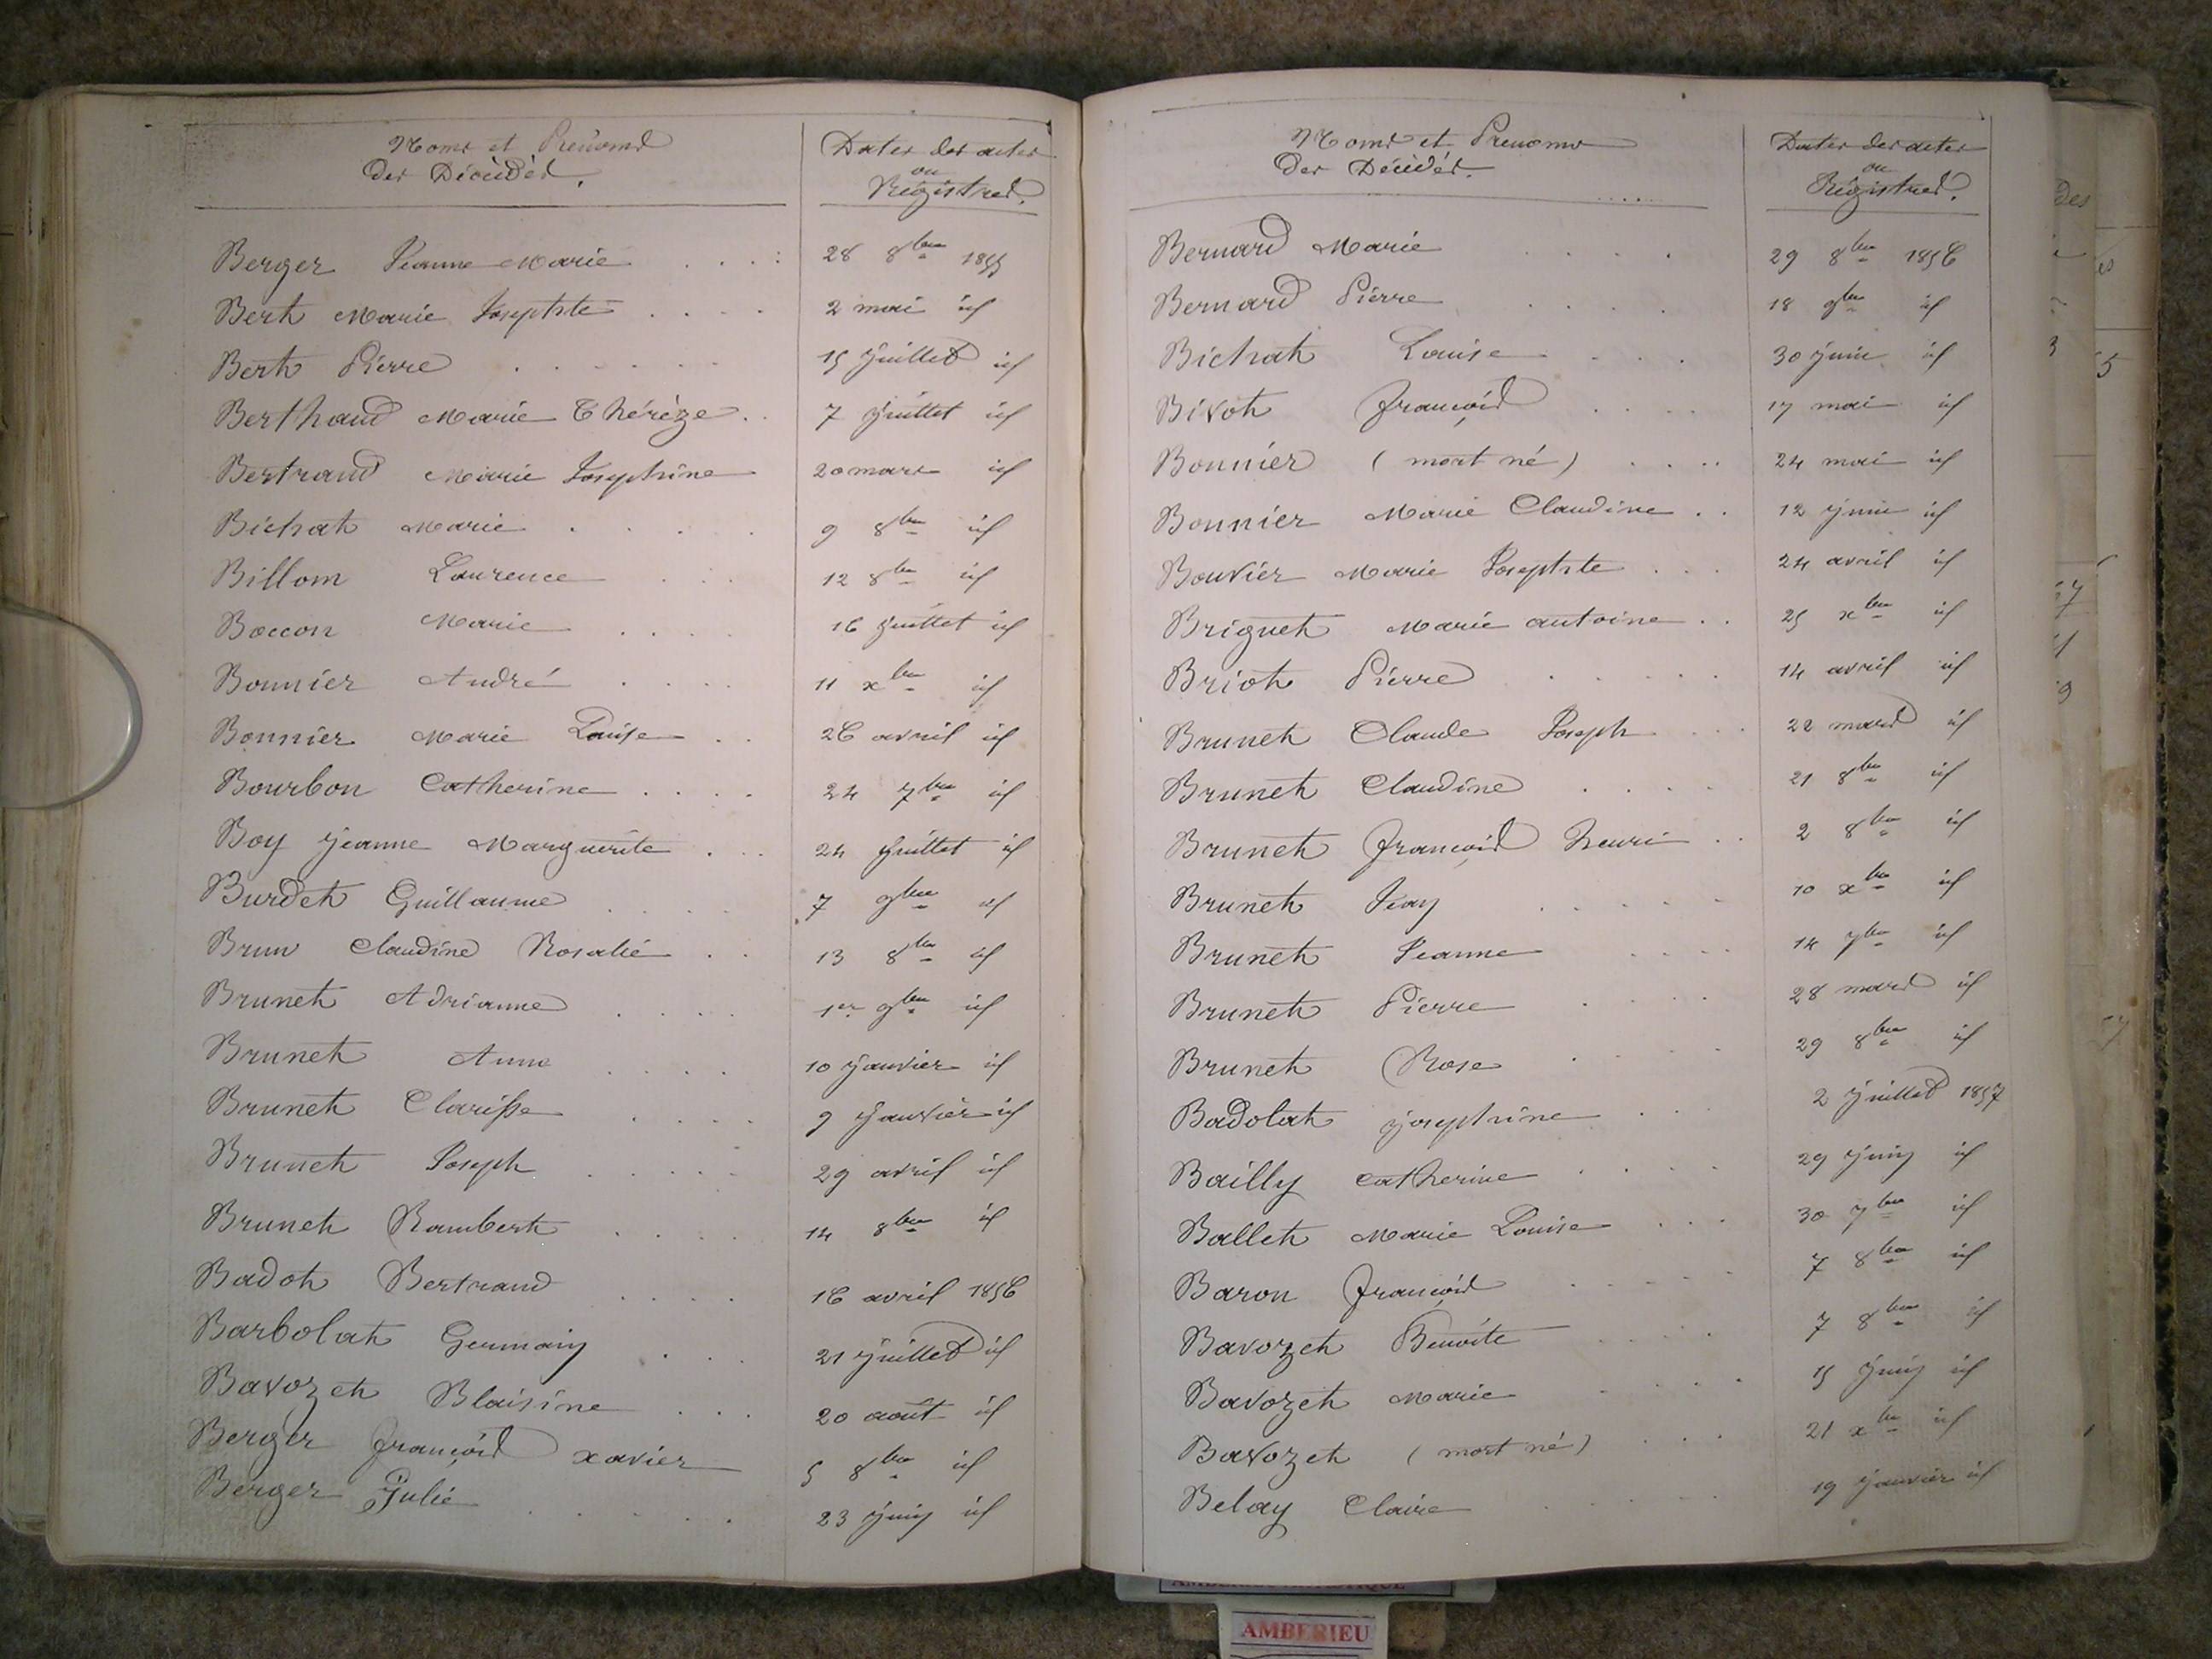 Noms et Prénoms
des Décédés.
Dates des actes
ou
Régistres.
Berger Jeanne Marie . . . : 28 8bre 1855
Bert Marie Josephte . . . . 2 mai id
Bert Pierre . . . . . . 15 Juillet id
Berthaud Marie Thérèze . . 7 Juillet id
Bertrand Marie Josephine 20 mars id
Bichat Marie . . . . 9 8bre id
Billom Laurence . . 12 8bre id
Boccon Marie . . . . 16 Juillet id
Bonnier André . . . . 11 xbre id
Bonnier Marie Louise . . 26 avril id
Bourbon Catherine . . . . 24 7bre id
Boy Jeanne Marguerite . . . 24 Juillet id
Burdet Guillaume . . . . 7 9bre id
Brun Claudine Rosalie . . 13 8bre id
Brunet Adrianne . . . . 1er 9bre id
Brunet Anne . . . . 10 Janvier id
Brunet Clarisse . . . . 9 Janvier id
Brunet Joseph . . . . . 29 avril id
Brunet Rambert . . . . 14 8bre id
Badot Bertrand . . . . 16 avril 1856
Barbolat Germain . . . 21 Juillet id
Bavozet Blaisine . . . 20 août id
Berger François xavier 5 8bre id
Berger Julie . . . . . 23 Juin id
Noms et Prenoms
des Décédés.
Dates des actes
ou
Régistres.
Bernard Marie . . . . 29 8bre 1856
Bernard Pierre . . . . 18 9bre id
Bichat Louise . . . . 30 Juin id
Bivot François . . . . 17 mai id
Bonnier (mort né) . . . . 24 mai id
Bonnier Marie Claudine . . 12 Juin id
Bouvier Marie Josephte . . . 24 avril id
Briguet Marie antoine . . 25 xbre id
Briot Pierre . . . . . 14 avril id
Brunet Claude Joseph . . . 22 mars id
Brunet Claudine . . . . 21 8bre id
Brunet François henri . . 2 8bre id
Brunet Jean . . . . . 10 xbre id
Brunet Jeanne . . . . 14 7bre id
Brunet Pierre . . . . 28 mars id
Brunet Rose . . . . 29 8bre id
Badolat Josephine . . . 2 Juillet 1857
Bailly catherine . . . . 29 Juin id
Ballet Marie Louise . . . 30 7bre id
Baron François . . . . . 7 8bre id
Bavozet Benoite . . . . 7 8bre id
Bavozet Marie . . . . 15 Juin id
Bavozet (mort né) . . . 21 xbre id
Belay Claire . . . . . 19 Janvier id
des
AMBERIEU